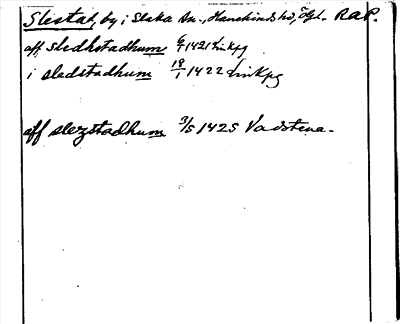 Slestat, by i Slaka sn., Hanekinds hd, Ögl. RAP.
aff sledhstadhum 6/1 1421 Linkpg
i sledstadhum 18/1 1422 Linkpg
aff slezstadhum 3/5 1425 Vadstena.